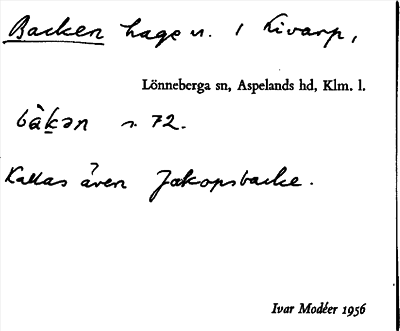 Backen hagen. i Kivarp,
Lönneberga sn, Aspelands hd, Klm. l.
bàkən s. 72.
Kallas även Jakopsbacke.
Ivar Modéer 1956